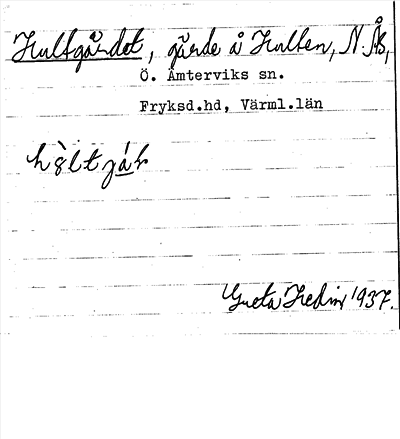 Hultgärdet, gärde å Hulten, N. Ås,
Ö. Ämterviks sn.
Fryksd.hd, Värml.län
Greta Hedin 1937.